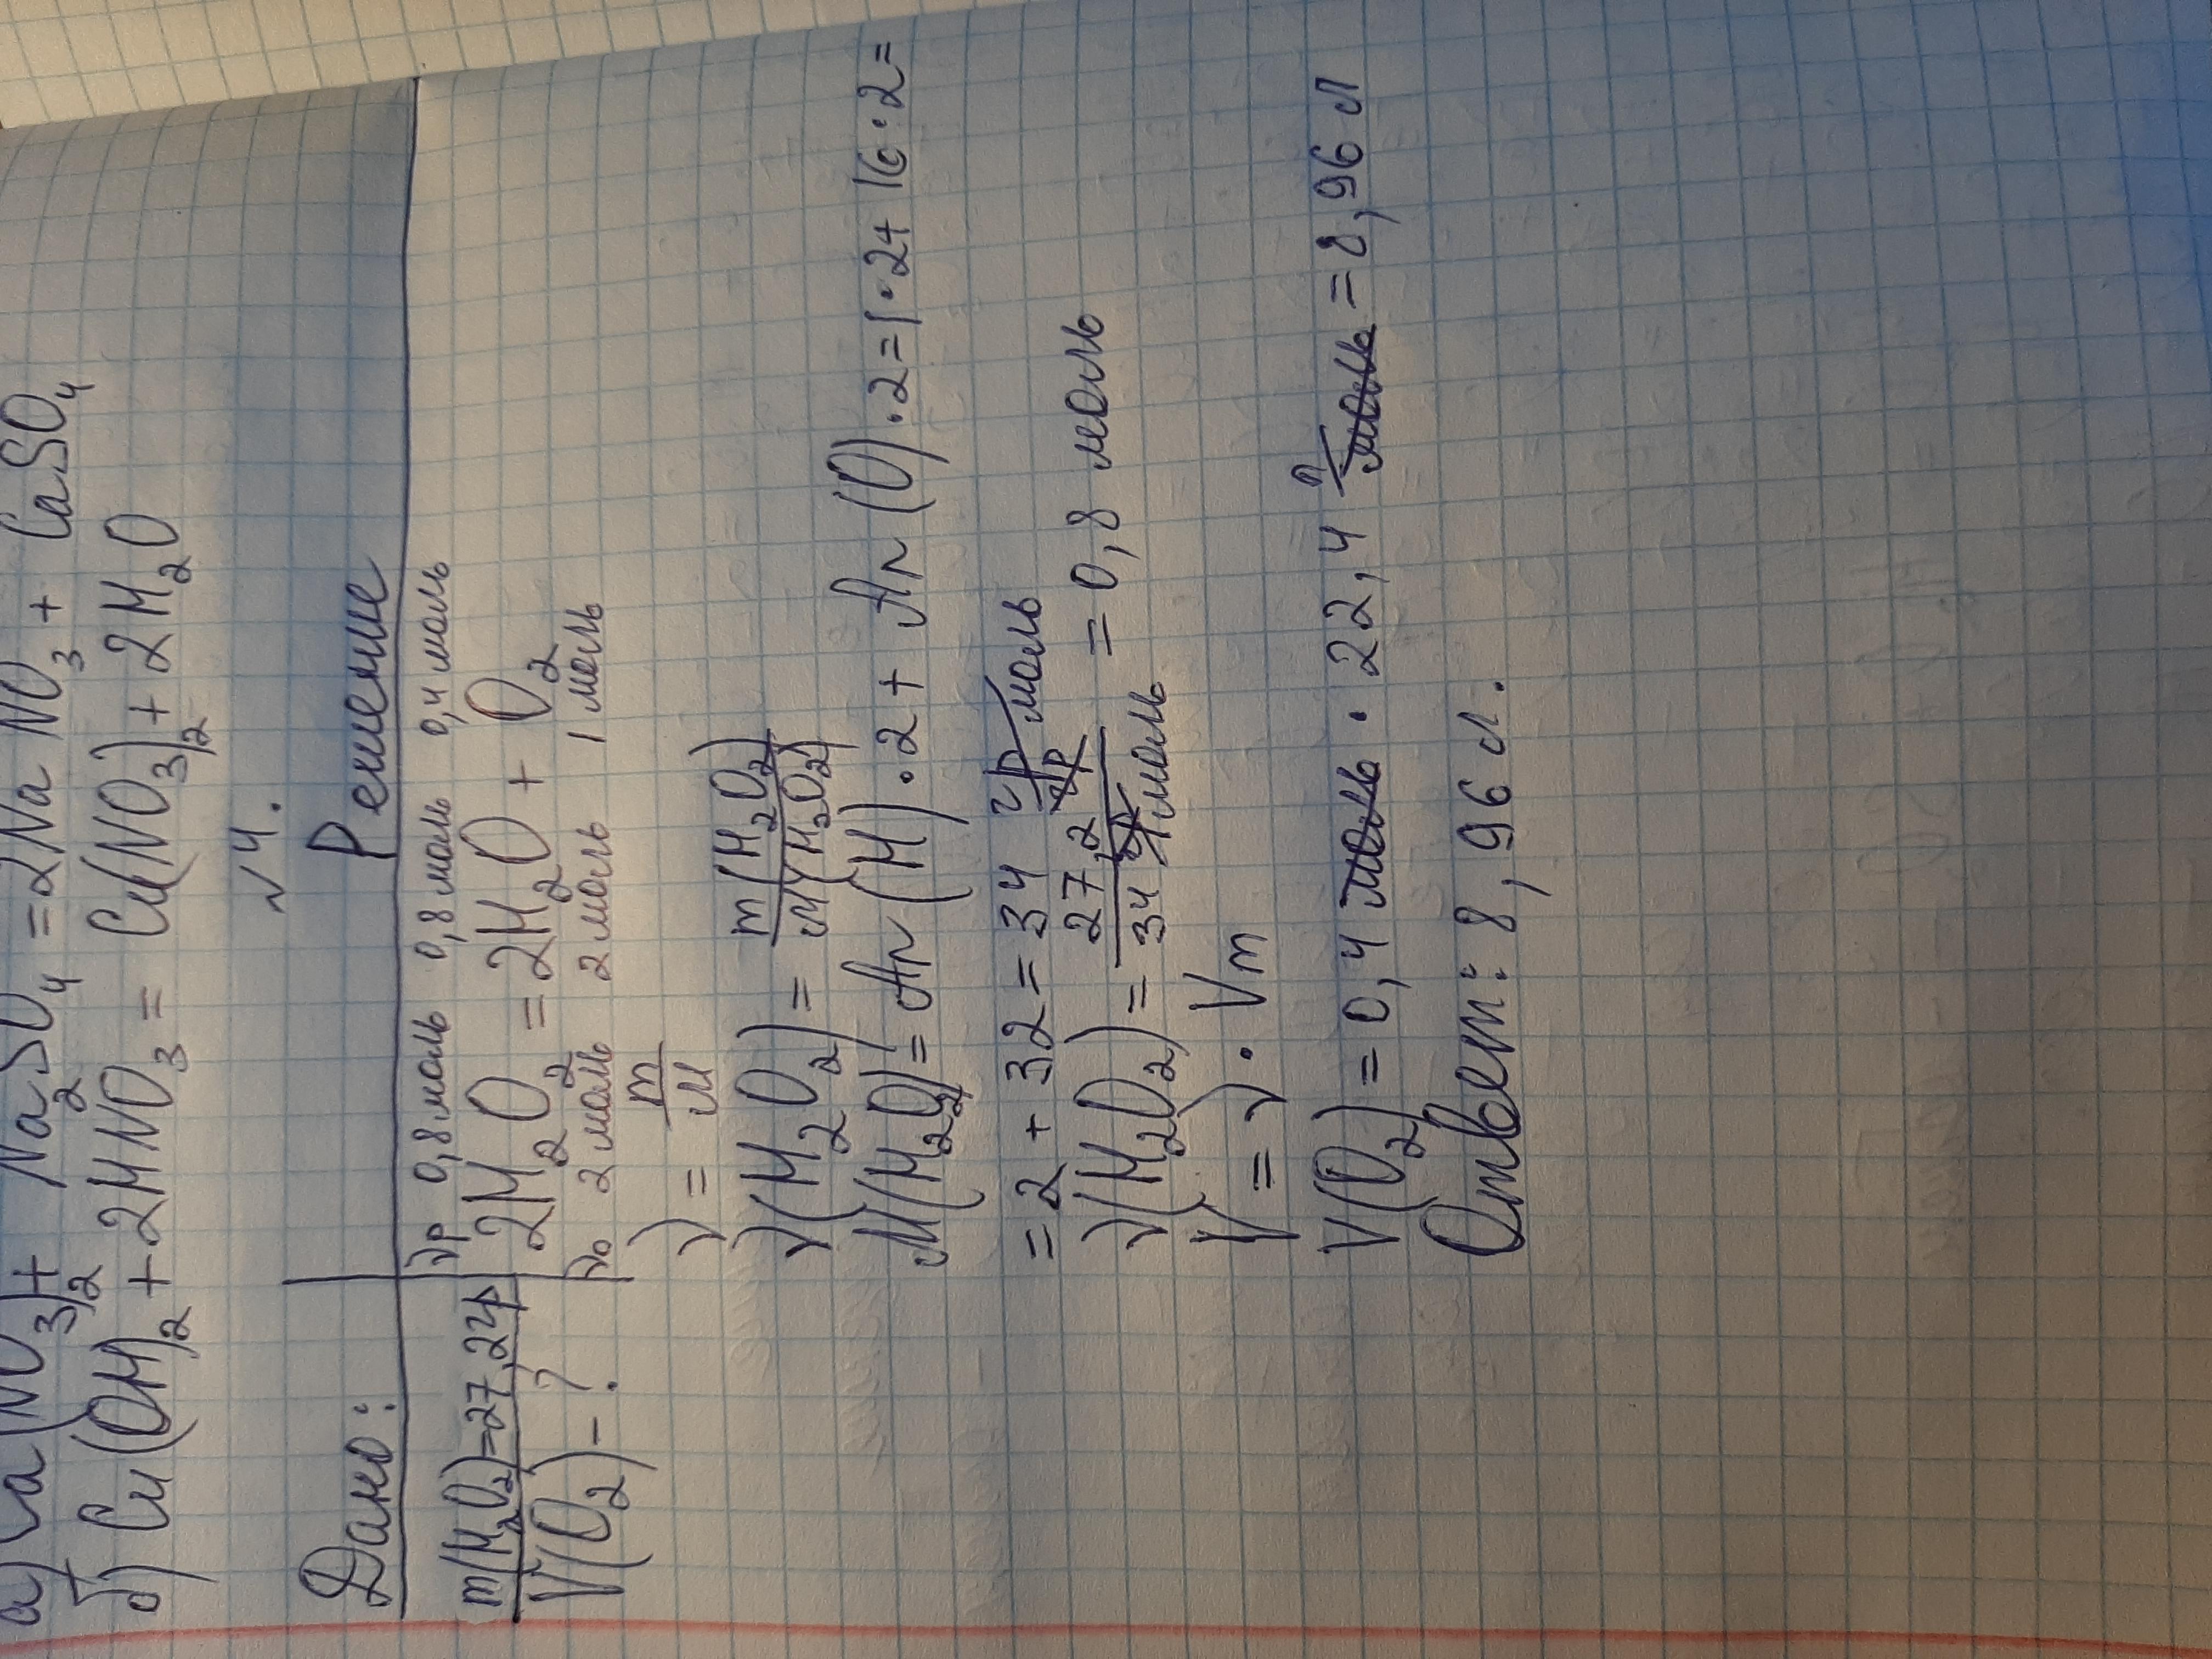 а) Ca(NO3)2 + Na2SO4 = 2NaNO3 + CaSO4
б) Cu(OH)2 + 2HNO3 = Cu(NO3)2 + 2H2O
№4.
Дано:
m(H2O2)=27,2гр
V(O2)-?
Решение
νр 0,8 моль 0,8 моль 0,4 моль
2H2O2 = 2H2O + O2
ν0 2 моль 2 моль 1 моль
ν = m/M
ν(H2O2) = m(H2O2)/M(H2O2)
M(H2O2) = Ar(H)·2 + Ar(O)·2 = 1·2+16·2=
= 2 + 32 = 34 гр/моль
ν(H2O2) = 27,2 гр/34 гр/моль = 0,8 моль
V = ν · Vm
V(O2) = 0,4 моль · 22,4 л/моль = 8,96 л
Ответ: 8,96 л.